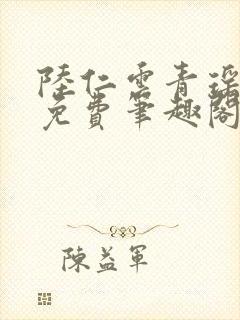 陸仁雲青瑶
免費筆趣閣
陳益軍